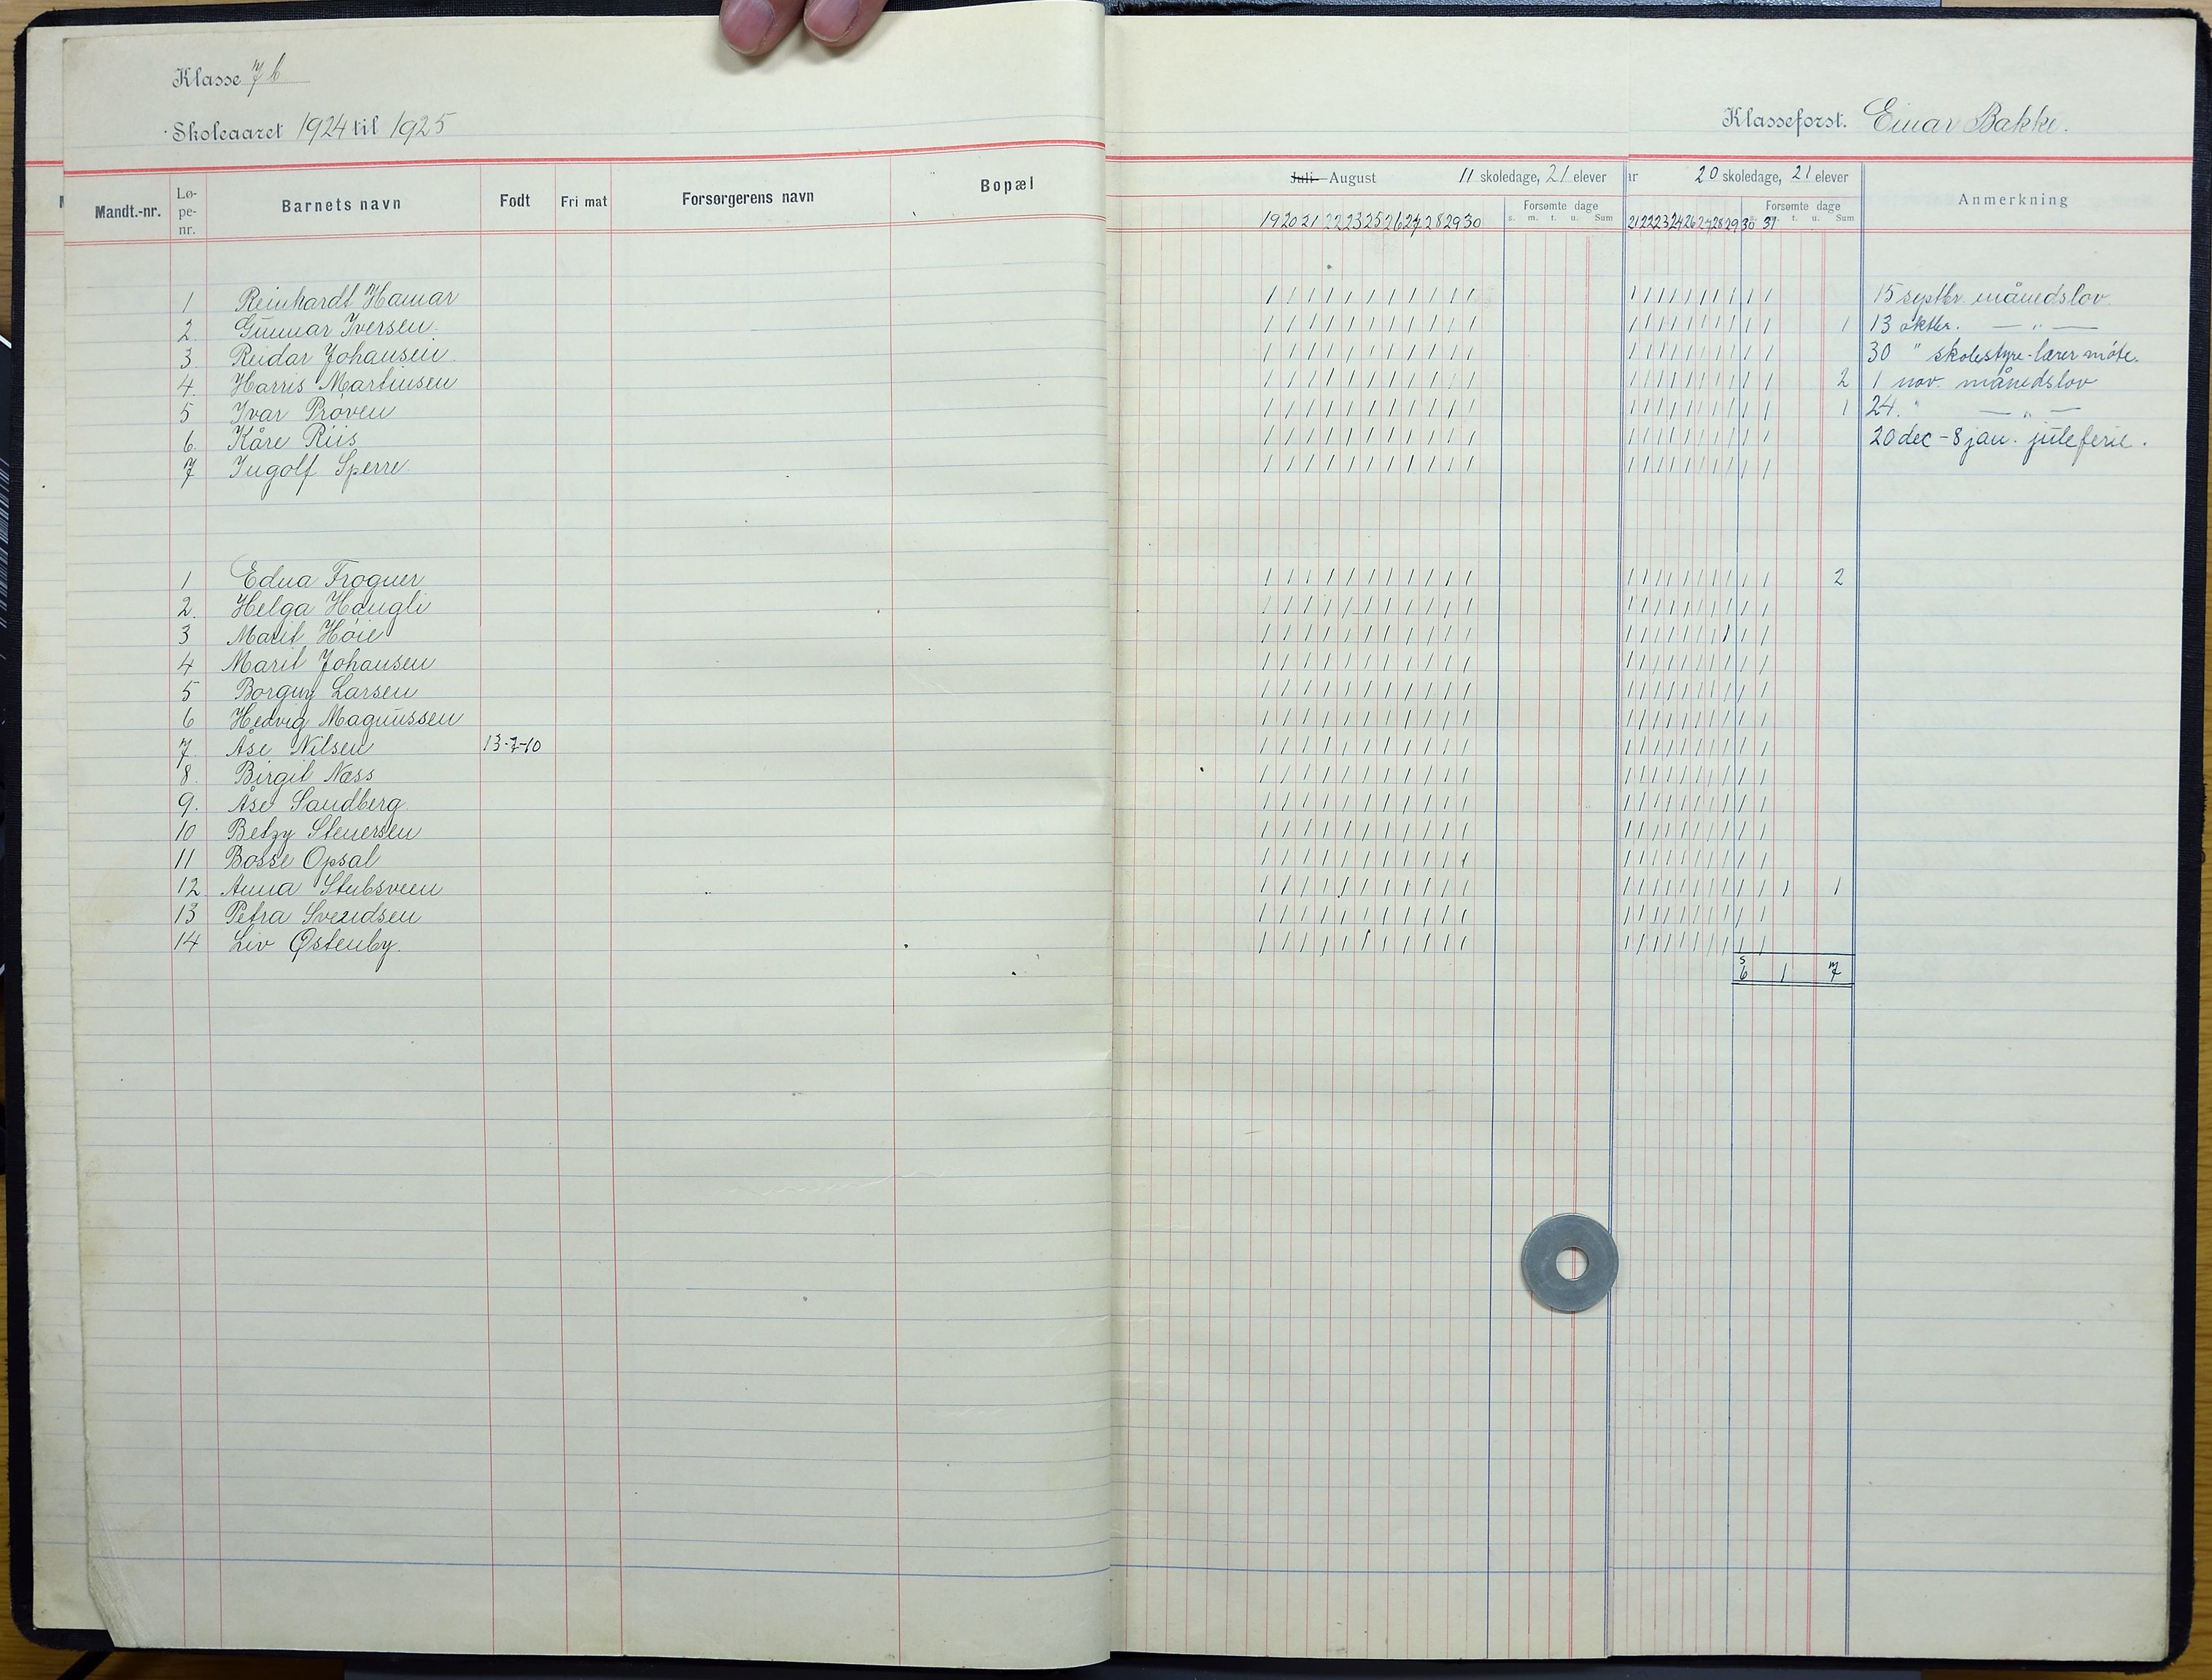 Klasse 7 b
Skoleaaret 1924 til 1925
Klasseforst. Einar Bakke.
Mandt.-nr. Lø-pe-nr. Barnets navn Født Fri mat Forsørgerens navn Bopæl
Juli August 11 skoledage, 21 elever
ar 20 skoledage, 21 elever
Anmerkning
19 20 21 22 23 25 26 27 28 29 30
Forsømte dage
s. m. t. u. Sum
21 22 23 24 26 27 28 29 30 31
Forsømte dage
t. u. Sum
1 Reinhardt Hamar 15 septbr. månedslov
2. Gunnar Iversen. 1 13 oktbr. — " —
3 Reidar Johansen. 30 " skolestyre-lærermøte.
4. Harris Martinsen 2 1 nov. månedslov
5 Ivar Prøven 1 24. " — " —
6. Kåre Riis 20 dec - 8 jan. juleferie.
7 Ingolf Sperre.
1 Edna Frogner 2
2. Helga Haugli
3 Marit Høie
4 Marit Johansen
5 Borgny Larsen
6 Hedvig Magnussen
7. Åse Nilsen 13-7-10
8. Birgit Næss
9. Åse Sandberg.
10 Betzy Stenersen
11 Bosse Opsal
12 Anna Stubsveen 1 1
13 Petra Svendsen
14 Liv Østenby.
s
6 1 7